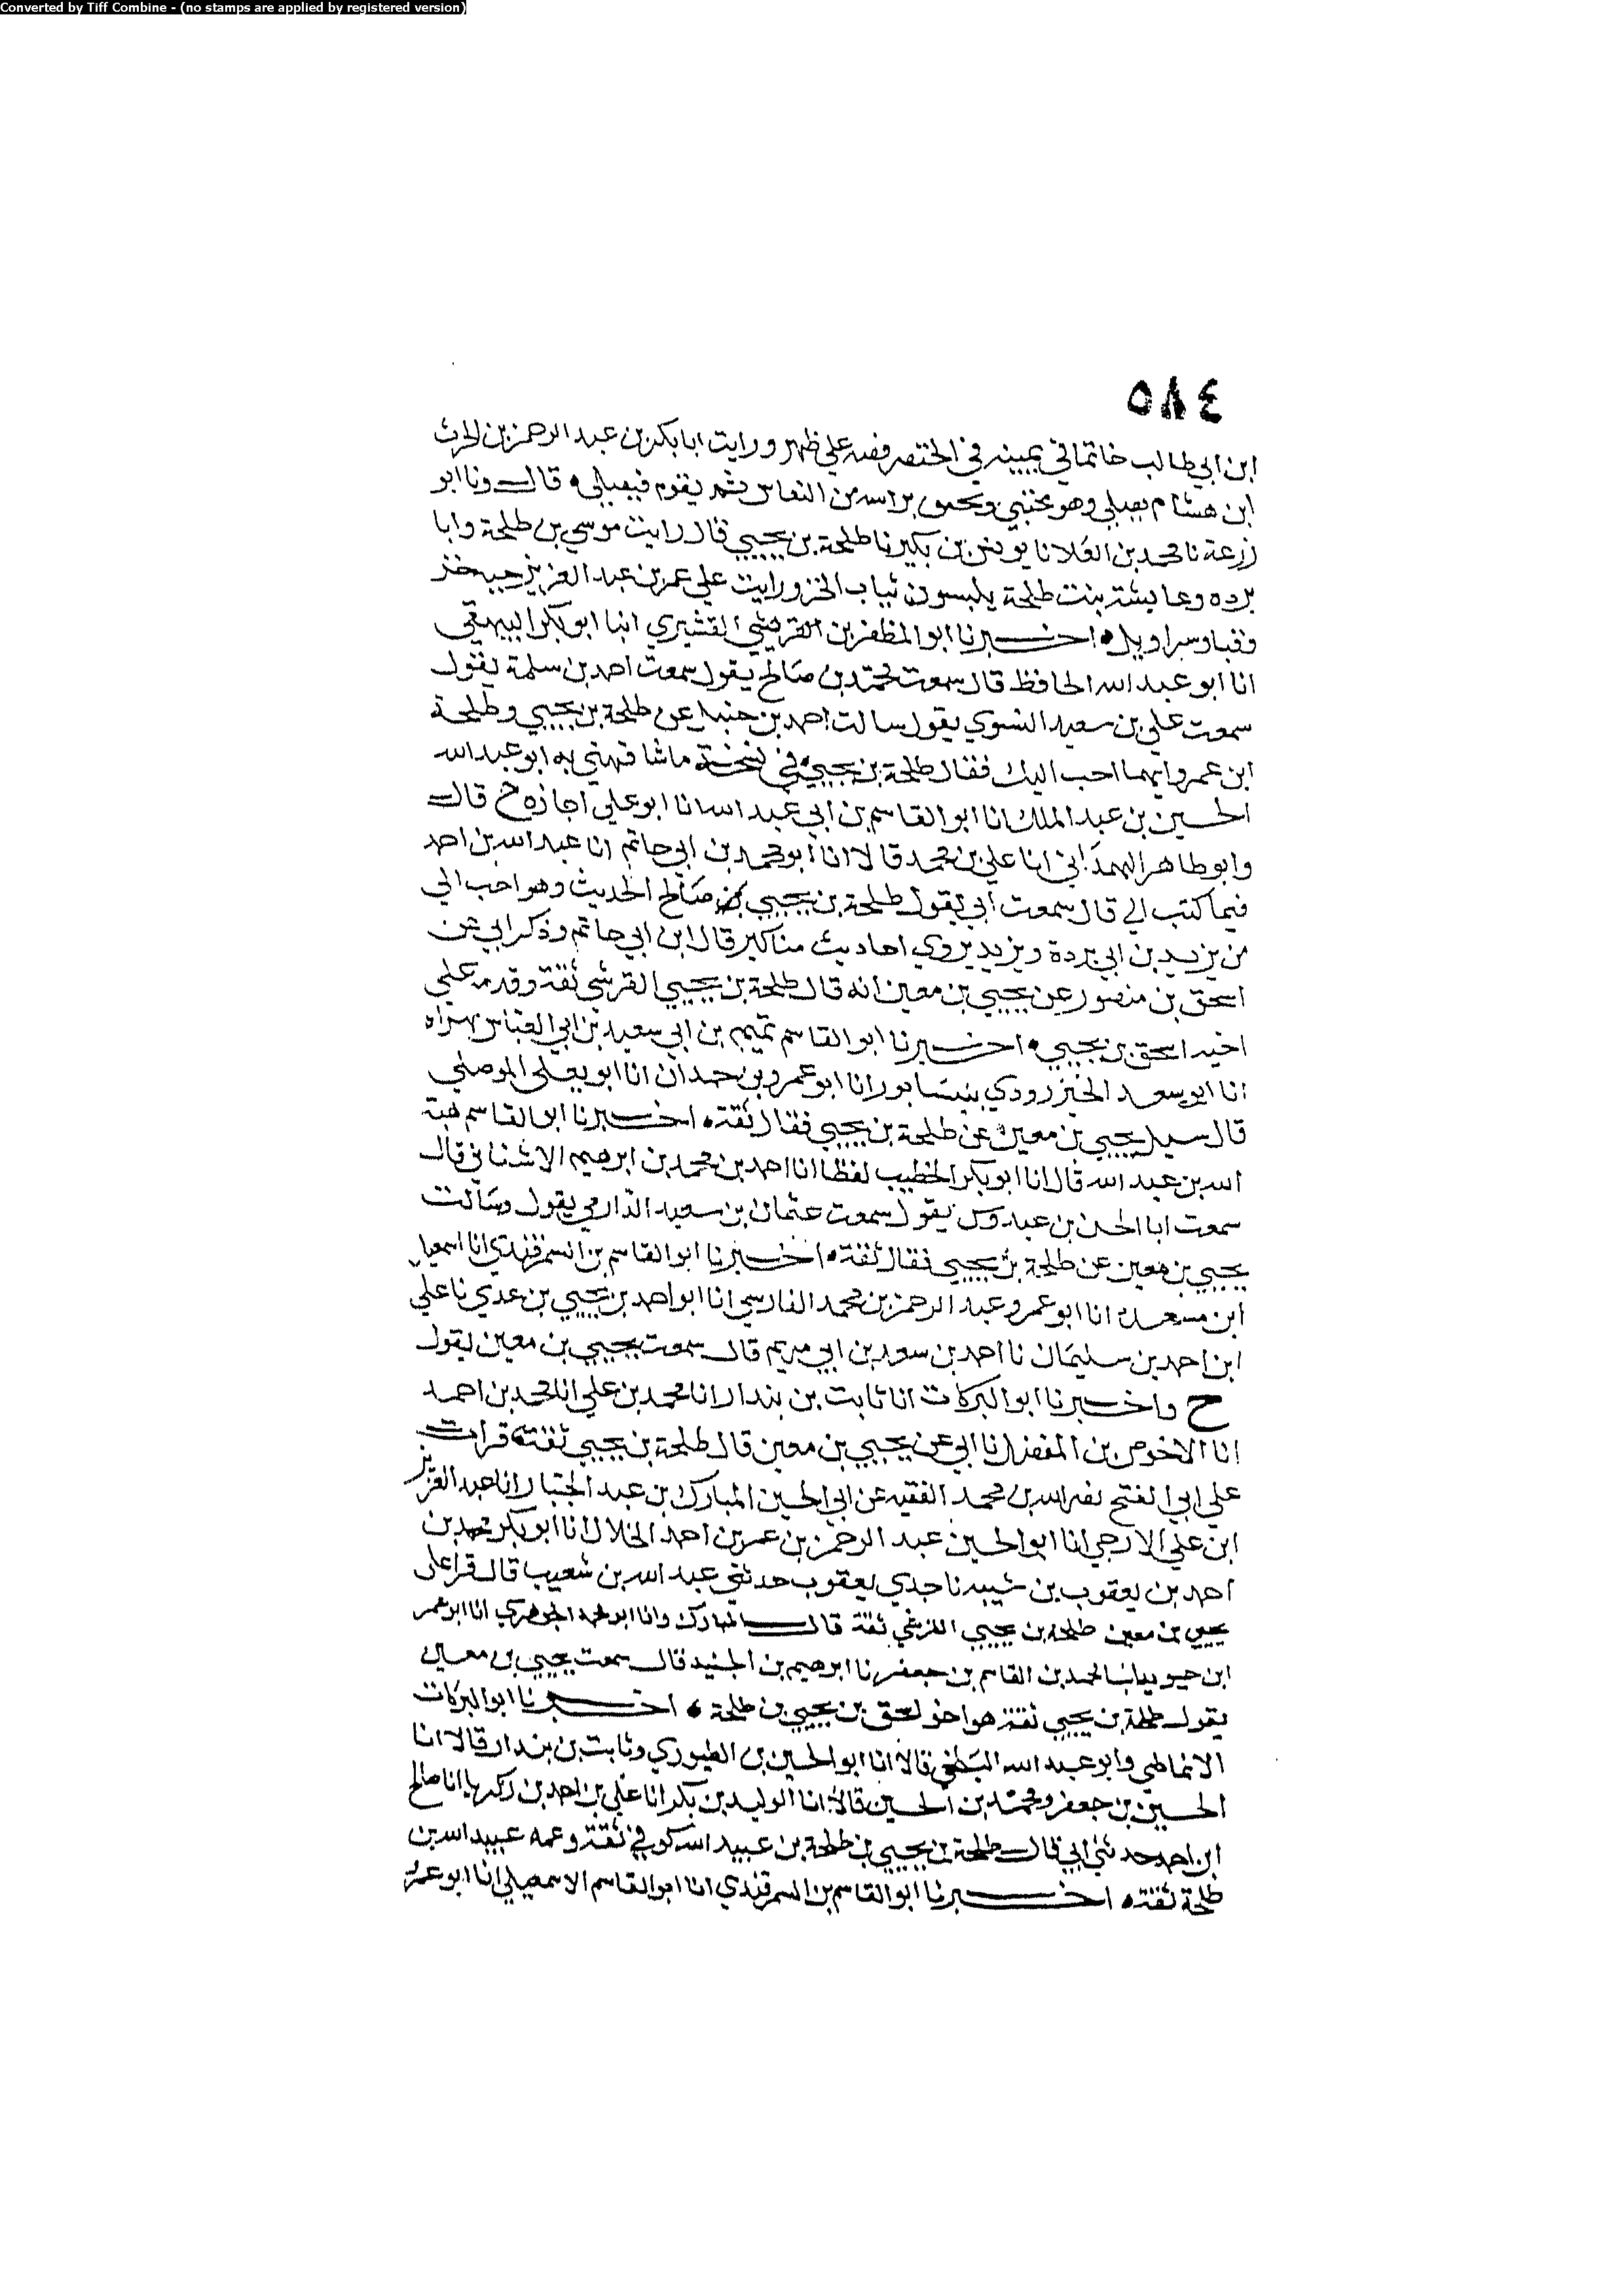 Converted by Tiff Combine - (no stamps are applied by registered version)
٥٨٤
ابن ابي طالب خاتما في يمينه في الخنصر وفصه علي ظهر ورايت ابا بكر بن عبد الرحمن بن الحرث
ابن هشام يصلي وهو محتبي ويخفق براسه من النعاس ثم يقوم فيصلي قال ونا ابو
زرعة نا محمد بن العلا نا يونس بن بكير نا طلحة بن يحيي قال رايت موسي بن طلحة وابا
برده وعايشة بنت طلحة يلبسون ثياب الخز ورايت علي عمر بن عبد العزيز جبه خز
وقبا وسراويل اخبرنا ابو المظفر بن القشيري انبا ابو بكر البيهقي
انا ابو عبد الله الحافظ قال سمعت محمد بن صالح يقول سمعت احمد بن سلمة يقول
سمعت علي بن سعيد النسوي يقول سالت احمد بن حنبل عن طلحة بن يحيي وطلحة
ابن عمرو ايهما احب اليك فقال طلحة بن يحيي في نسخة ماشا فهني به ابو عبد الله
الحسين بن عبد الملك انا ابو القاسم بن ابي عبد الله انا ابو علي اجازه ح قال
وابو طاهر الهمذاني انا علي بن محمد قالا انا ابو محمد بن ابي حاتم انا عبد الله بن احمد
فيما كتب الي قال سمعت ابي يقول طلحة بن يحيي صالح الحديث وهو احب الي
من يزيد بن ابي بردة ويزيد يروي احاديث مناكير قال ابن ابي حاتم وذكر ابي عن
اسحق بن منصور عن يحيي بن معين انه قال طلحة بن يحيي القرشي ثقة وقدمه علي
اخيه اسحق بن يحيي اخبرنا ابو القاسم تميم بن ابي سعيد بن ابي العباس بهراه
انا ابو سعد الخنزرودي بنيسابور انا ابو عمرو بن حمدان انا ابو يعلي الموصلي
قال سيل يحيي بن معين عن طلحة بن يحيي فقال ثقة اخبرنا ابو القاسم هبة
الله بن عبد الله قال انا ابو بكر الخطيب لفظا انا احمد بن محمد بن ابرهيم الاشناني قال
سمعت ابا الحسن بن عبدوس يقول سمعت عثمان بن سعيد الدارمي يقول وسالت
يحيي بن معين عن طلحة بن يحيي فقال ثقة اخبرنا ابو القاسم بن السمرقندي انا اسمعيل
ابن مسعدة انا ابو عمرو عبد الرحمن بن محمد الفارسي انا ابو احمد بن يحيي بن عدي نا علي
ابن احمد بن سليمان نا احمد بن سعد بن ابي مريم قال سمعت يحيي بن معين يقول
ح واخبرنا ابو البركات انا ثابت بن بندار انا محمد بن علي انا محمد بن احمد
انا الاخوص بن المفضل نا ابي عن يحيي بن معين قال طلحة بن يحيي ثقة قرات
علي ابي الفتح نصر الله بن محمد الفقيه عن ابي الحسين المبارك بن عبد الجبار انا عبد العزيز
ابن علي الازجي انا ابو الحسين عبد الرحمن بن عمر بن احمد الخلال انا ابو بكر محمد بن
احمد بن يعقوب بن شيبه نا جدي يعقوب حدثني عبد الله بن شعيب قال قرا علي
يحيي بن معين طلحة بن يحيي القرشي ثقة قال المبارك وانا ابو محمد الجوهري انا ابو عمر
ابن حيويه انا محمد بن القاسم بن جعفر نا ابرهيم بن الجنيد قال سمعت يحيي بن معين
يقول طلحة بن يحيي ثقة هو اخو اسحق بن يحيي بن طلحة اخبرنا ابو البركات
الانماطي وابو عبد الله البلخي قالا انا ابو الحسين بن الطيوري وثابت بن بندار قالا انا
الحسين بن جعفر ومحمد بن الحسين قالا انا الوليد بن بكر انا علي بن احمد بن زكريا انا صالح
ابن احمد حدثني ابي قال طلحة بن يحيي بن طلحة بن عبيد الله كوفي ثقة وعمه عبيد الله بن
طلحة ثقة اخبرنا ابو القاسم بن السمرقندي انا ابو القاسم الاسمعيلي انا ابو عمرو